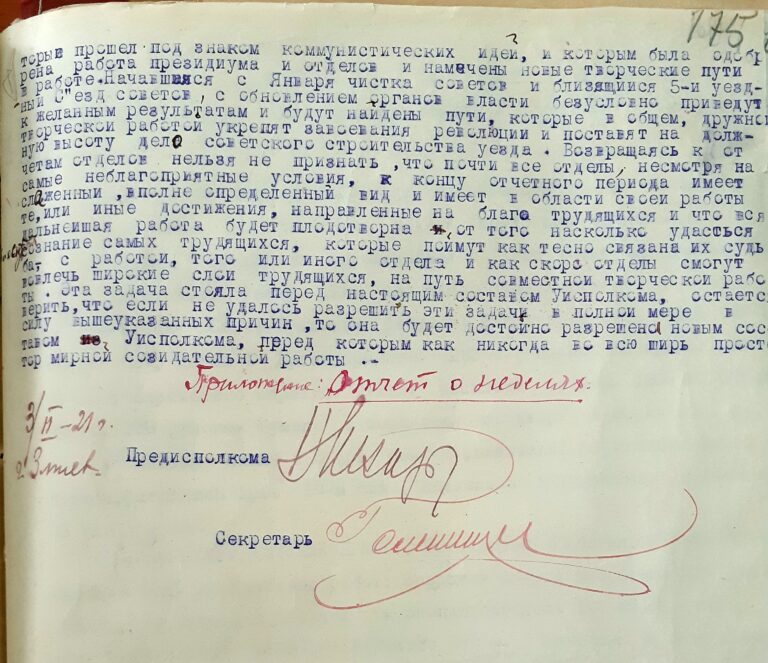 175
торые прошел под знаком коммунистических идей, и которым была одобр
рена работа президиума и отделов и намечены новые творческие пути
в работе.Начавшаяся с Января чистка советов и близящийся 5-й уезд-
ный С"езд советов, с обновлением органов власти безусловно приведут
к желанным результатам и будут найдены пути, которые в общем, дружной
творческой работой укрепят завоевания революции и поставят на долж-
ную высоту дело советского строительства уезда. Возвращаясь к от
четам отделов нельзя не признать ,что почти все отделы, несмотря на
самые неблагоприятные условия, к концу отчетного периода имеет
слаженный ,вполне определенный вид и имеет в области своей работы
те,или иные достижения, направленные на благо трудящихся и что вся
дальнейшая работа будет плодотворна от того насколько удасться
сознание самых трудящихся, которые поймут как тесно связана их судь
ба, с работой, того или иного отдела и как скоро отделы смогут
вовлечь широкие слои трудящихся, на путь совместной творческой рабо
ты . Эта задача стояла перед настоящим составом Уисполкома, остаетс
верить,что если не удалось разрешить эти задачи в полной мере в
силу вышеуказанных причин ,то она будет достойно разрешена новым сос
тавом Уисполкома, перед которым как никогда во всю ширь прост
тор мирной созидательной работы .--
Приложение: Отчет о неделях.
3/II-21г.
г.
Предисполкома
Секретарь